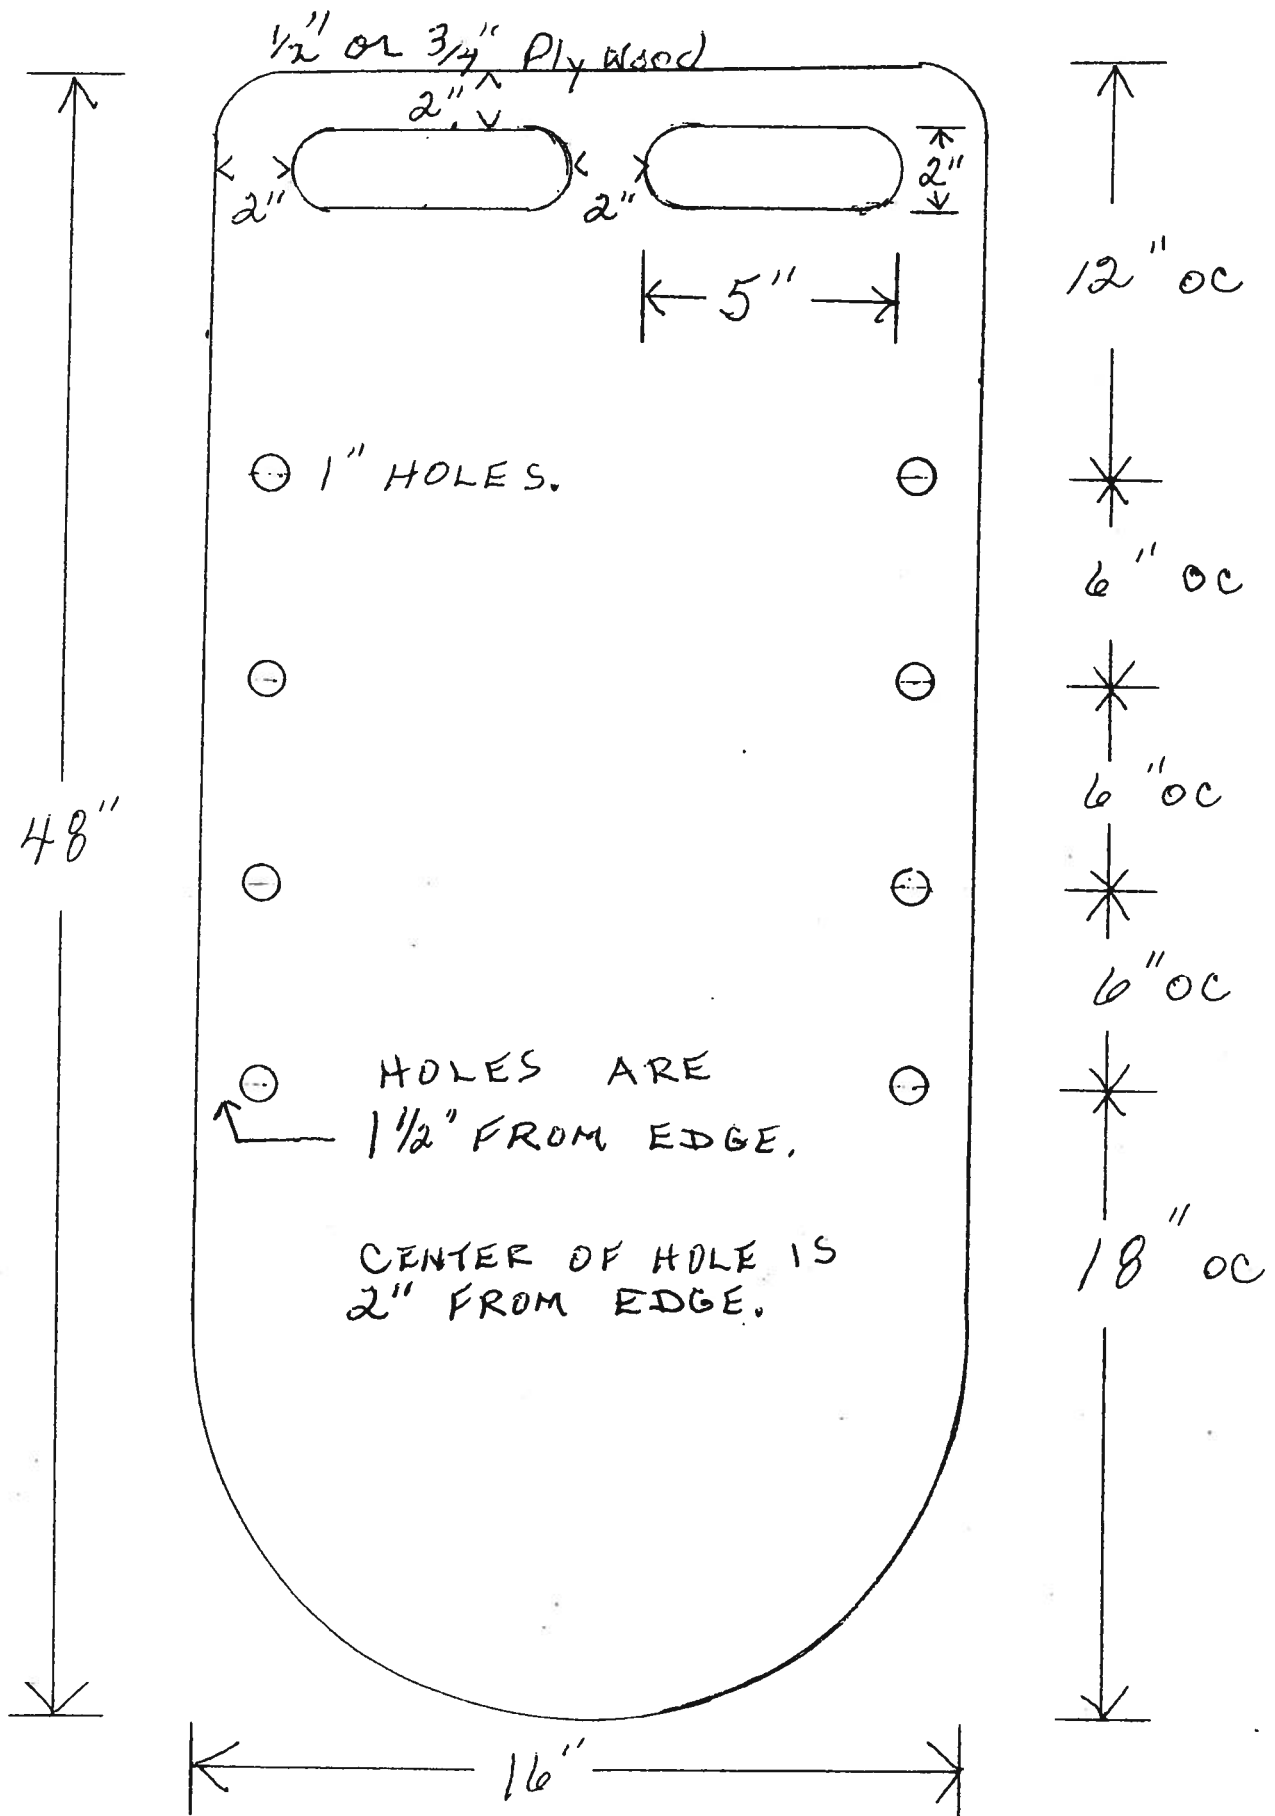 1/2" or 3/4" Ply Wood
2"
2"
2"
2"
5"
12" OC
1" HOLES.
6" OC
6" OC
48"
6" OC
HOLES ARE
1 1/2" FROM EDGE.
CENTER OF HOLE IS
2" FROM EDGE.
18" OC
16"